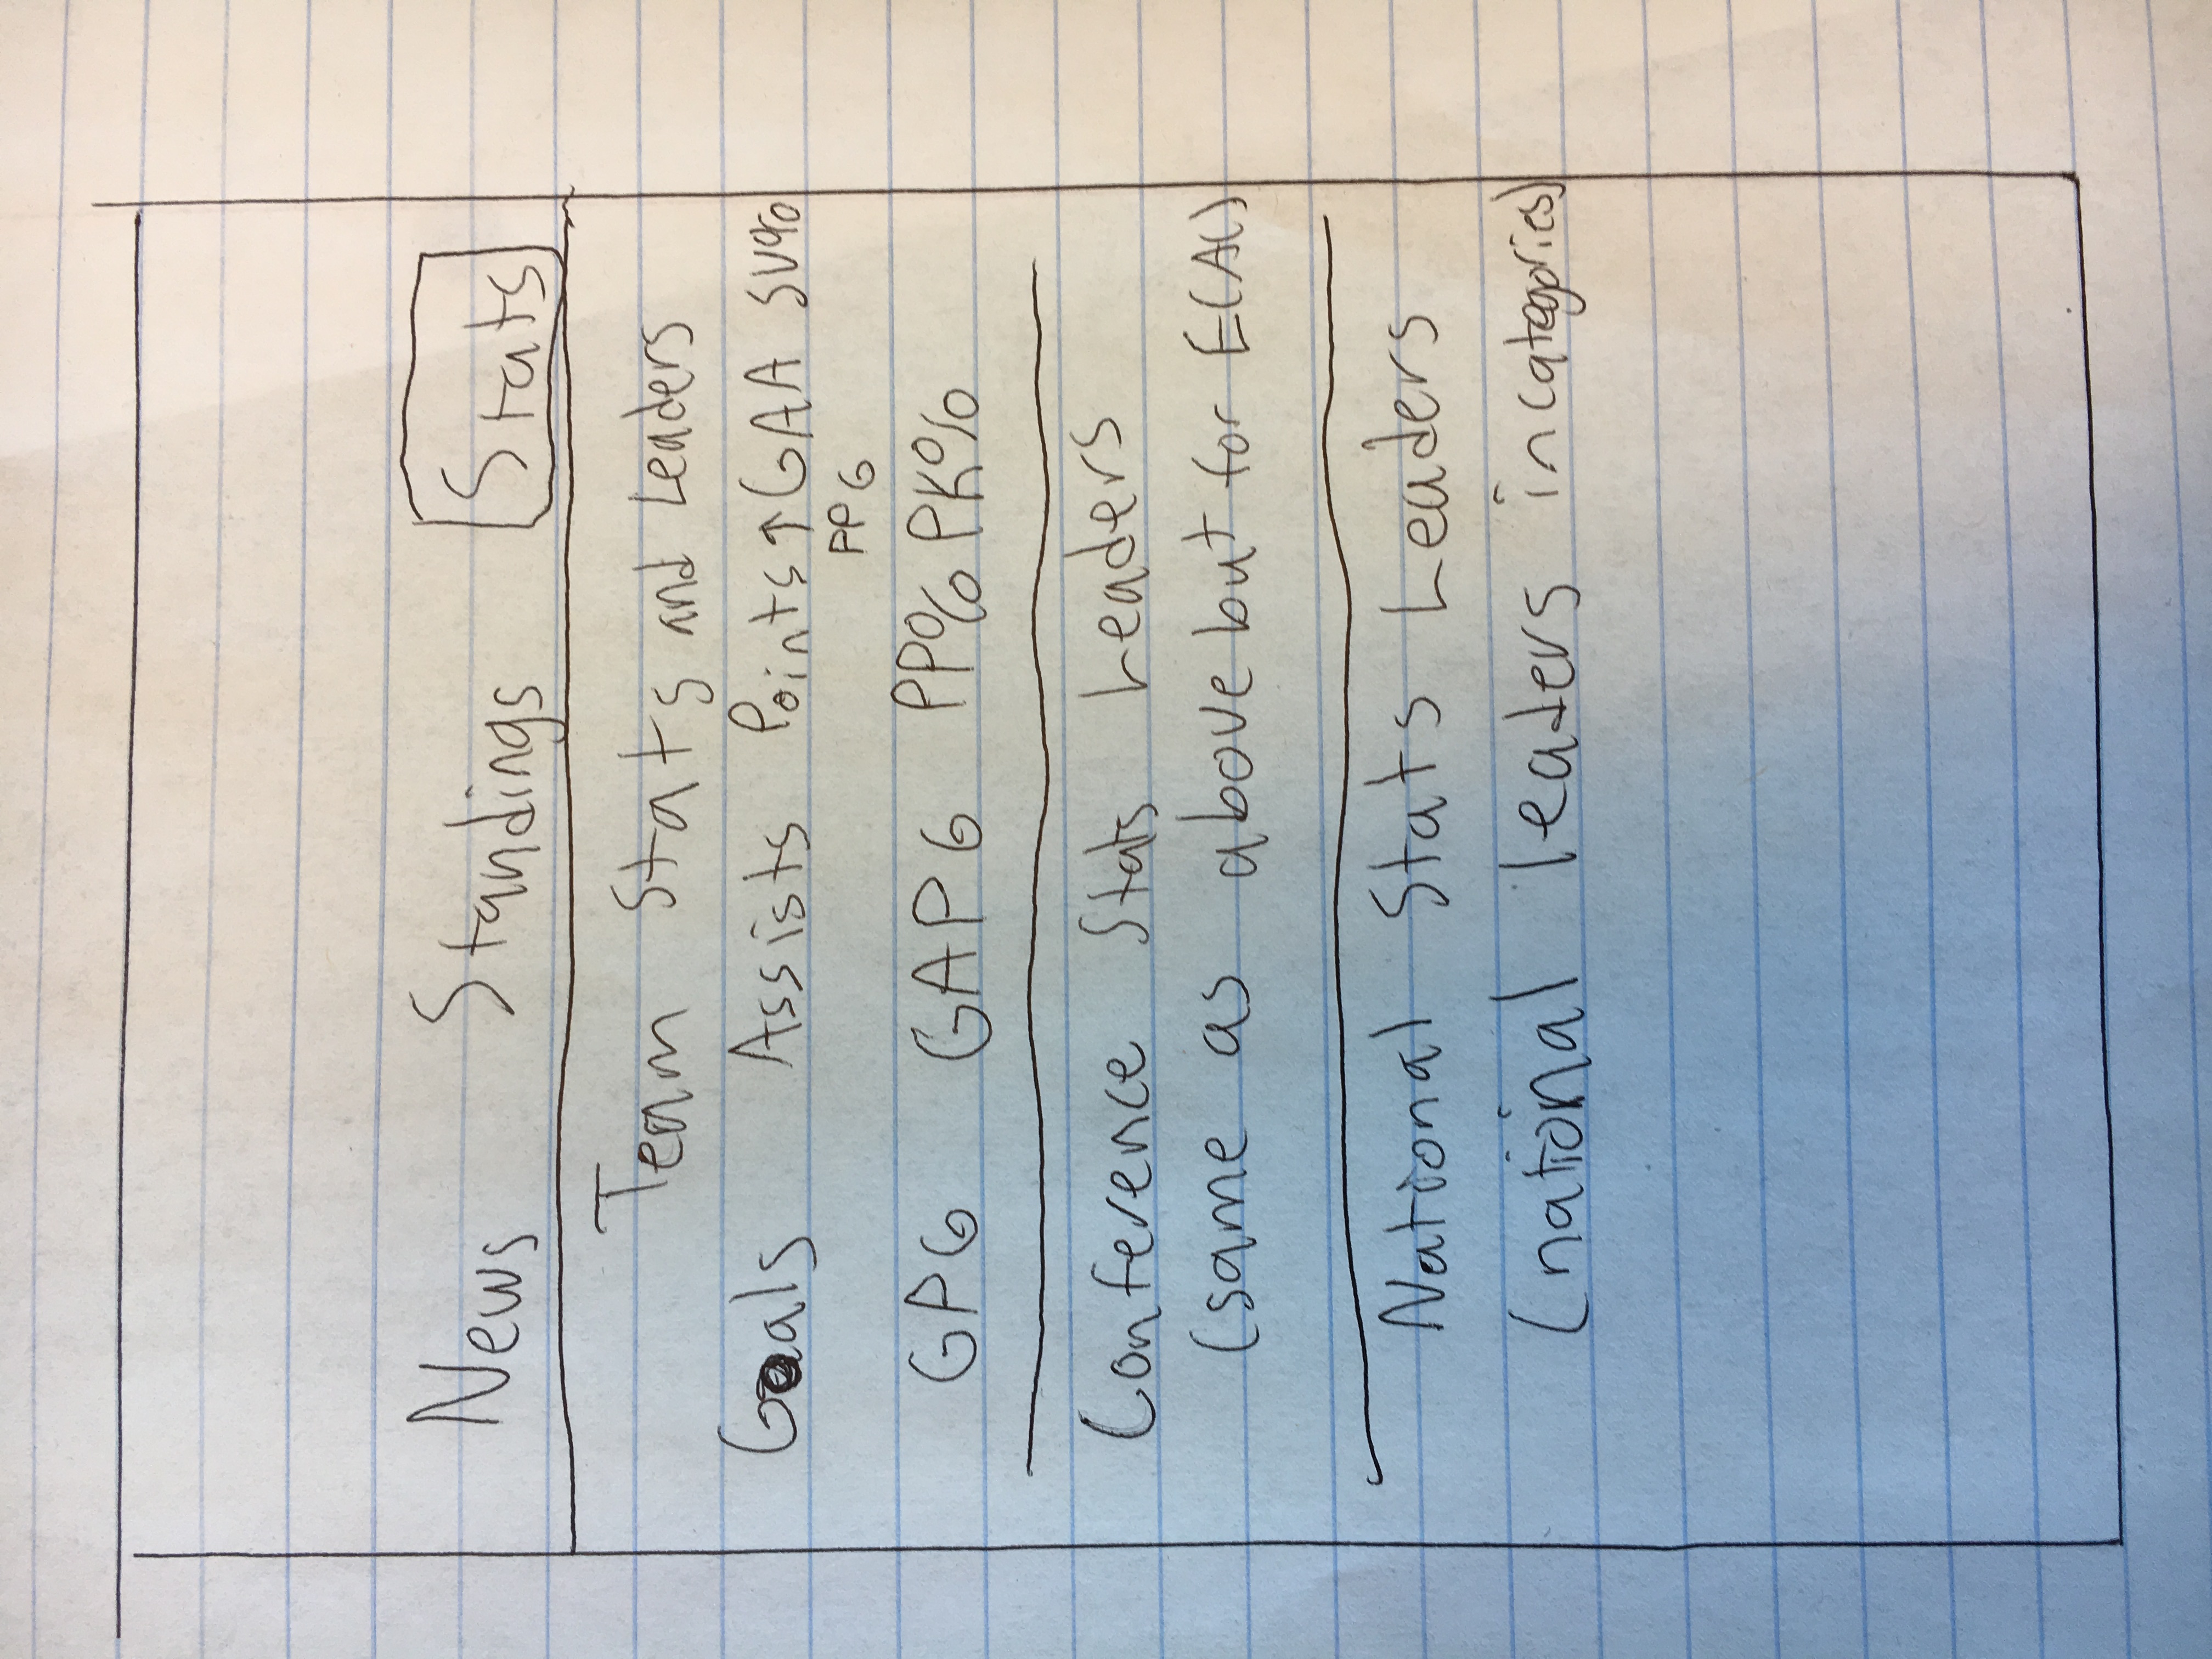 News Standings Stats
Team Stats and Leaders
Goals Assists Points ↑ GAA SV%
PPG
GPG GAPG PP% PK%
Conference Stats Leaders
(same as above but for ECAC)
National Stats Leaders
(national leaders in categories)